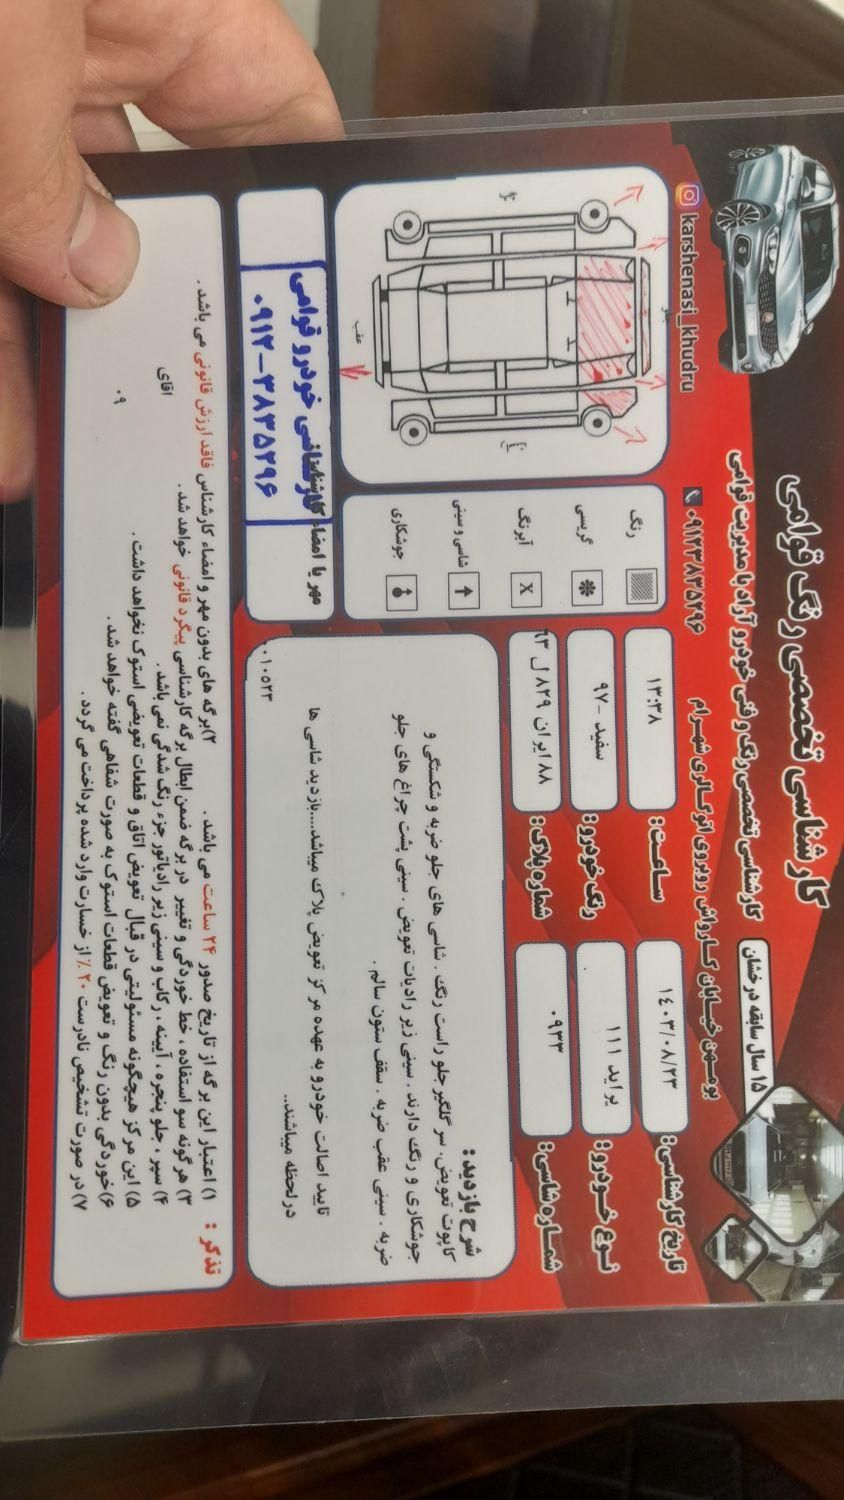 کارشناسی تخصصی رنگ قوامی
کارشناسی تخصصی رنگ و فنی خودرو آزاد با مدیریت قوامی
۱۵ سال سابقه درخشان
بومهن خیابان کارواش روبروی اتوگالری شهرام
۰۹۱۲۳۸۳۵۲۹۶
karshenasi_khudru
تاریخ کارشناسی: ۱۴۰۳/۰۸/۲۳
ساعت: ۱۳:۳۸
نوع خودرو: پراید ۱۱۱
رنگ خودرو: سفید -۹۷
شماره شاسی: ۰۹۳۳
شماره پلاک: ۸۸ ایران ۸۲۹ ل ۶۳
رنگ
گریسی
آبرنگ
X
شاسی و سینی
جوشکاری
جلو
عقب
شرح بازدید:
کاپوت تعویض. سر گلگیر جلو راست رنگ . شاسی های جلو ضربه و شکستگی و
جوشکاری و رنگ دارند . سینی زیر رادیات تعویض . سینی پشت چراغ های جلو
ضربه . سینی عقب ضربه . سقف ستون سالم .
تایید اصالت خودرو به عهده مرکز تعویض پلاک میباشد....بازدید شاسی ها
در لحظه میباشند..
۰۱۰۵۲۳
مهر یا امضاء کارشناس
کارشناسی خودرو قوامی
۰۹۱۲-۳۸۳۵۲۹۶
تذکر :
۱) اعتبار این برگه از تاریخ صدور ۲۴ ساعت می باشد .
۲)برگه های بدون مهر و امضاء کارشناس فاقد ارزش قانونی می باشد .
۳) هر گونه سو استفاده ، خط خوردگی و تغییر در برگه ضمن ابطال برگه کارشناسی پیگرد قانونی خواهد شد .
۴) سپر ، جلو پنجره ، آیینه ، رکاب و سینی زیر رادیاتور جزء رنگ شدگی نمی باشد .
۵) این مرکز هیچگونه مسئولیتی در قبال تعویض اتاق و قطعات تعویضی استوک نخواهد داشت .
۶)خوردگی بدون رنگ و تعویض قطعات استوک به صورت شفاهی گفته خواهد شد .
۷) در صورت تشخیص نادرست ۲۰ ٪ از خسارت وارد شده پرداخت می گردد .
اقای
۰۹